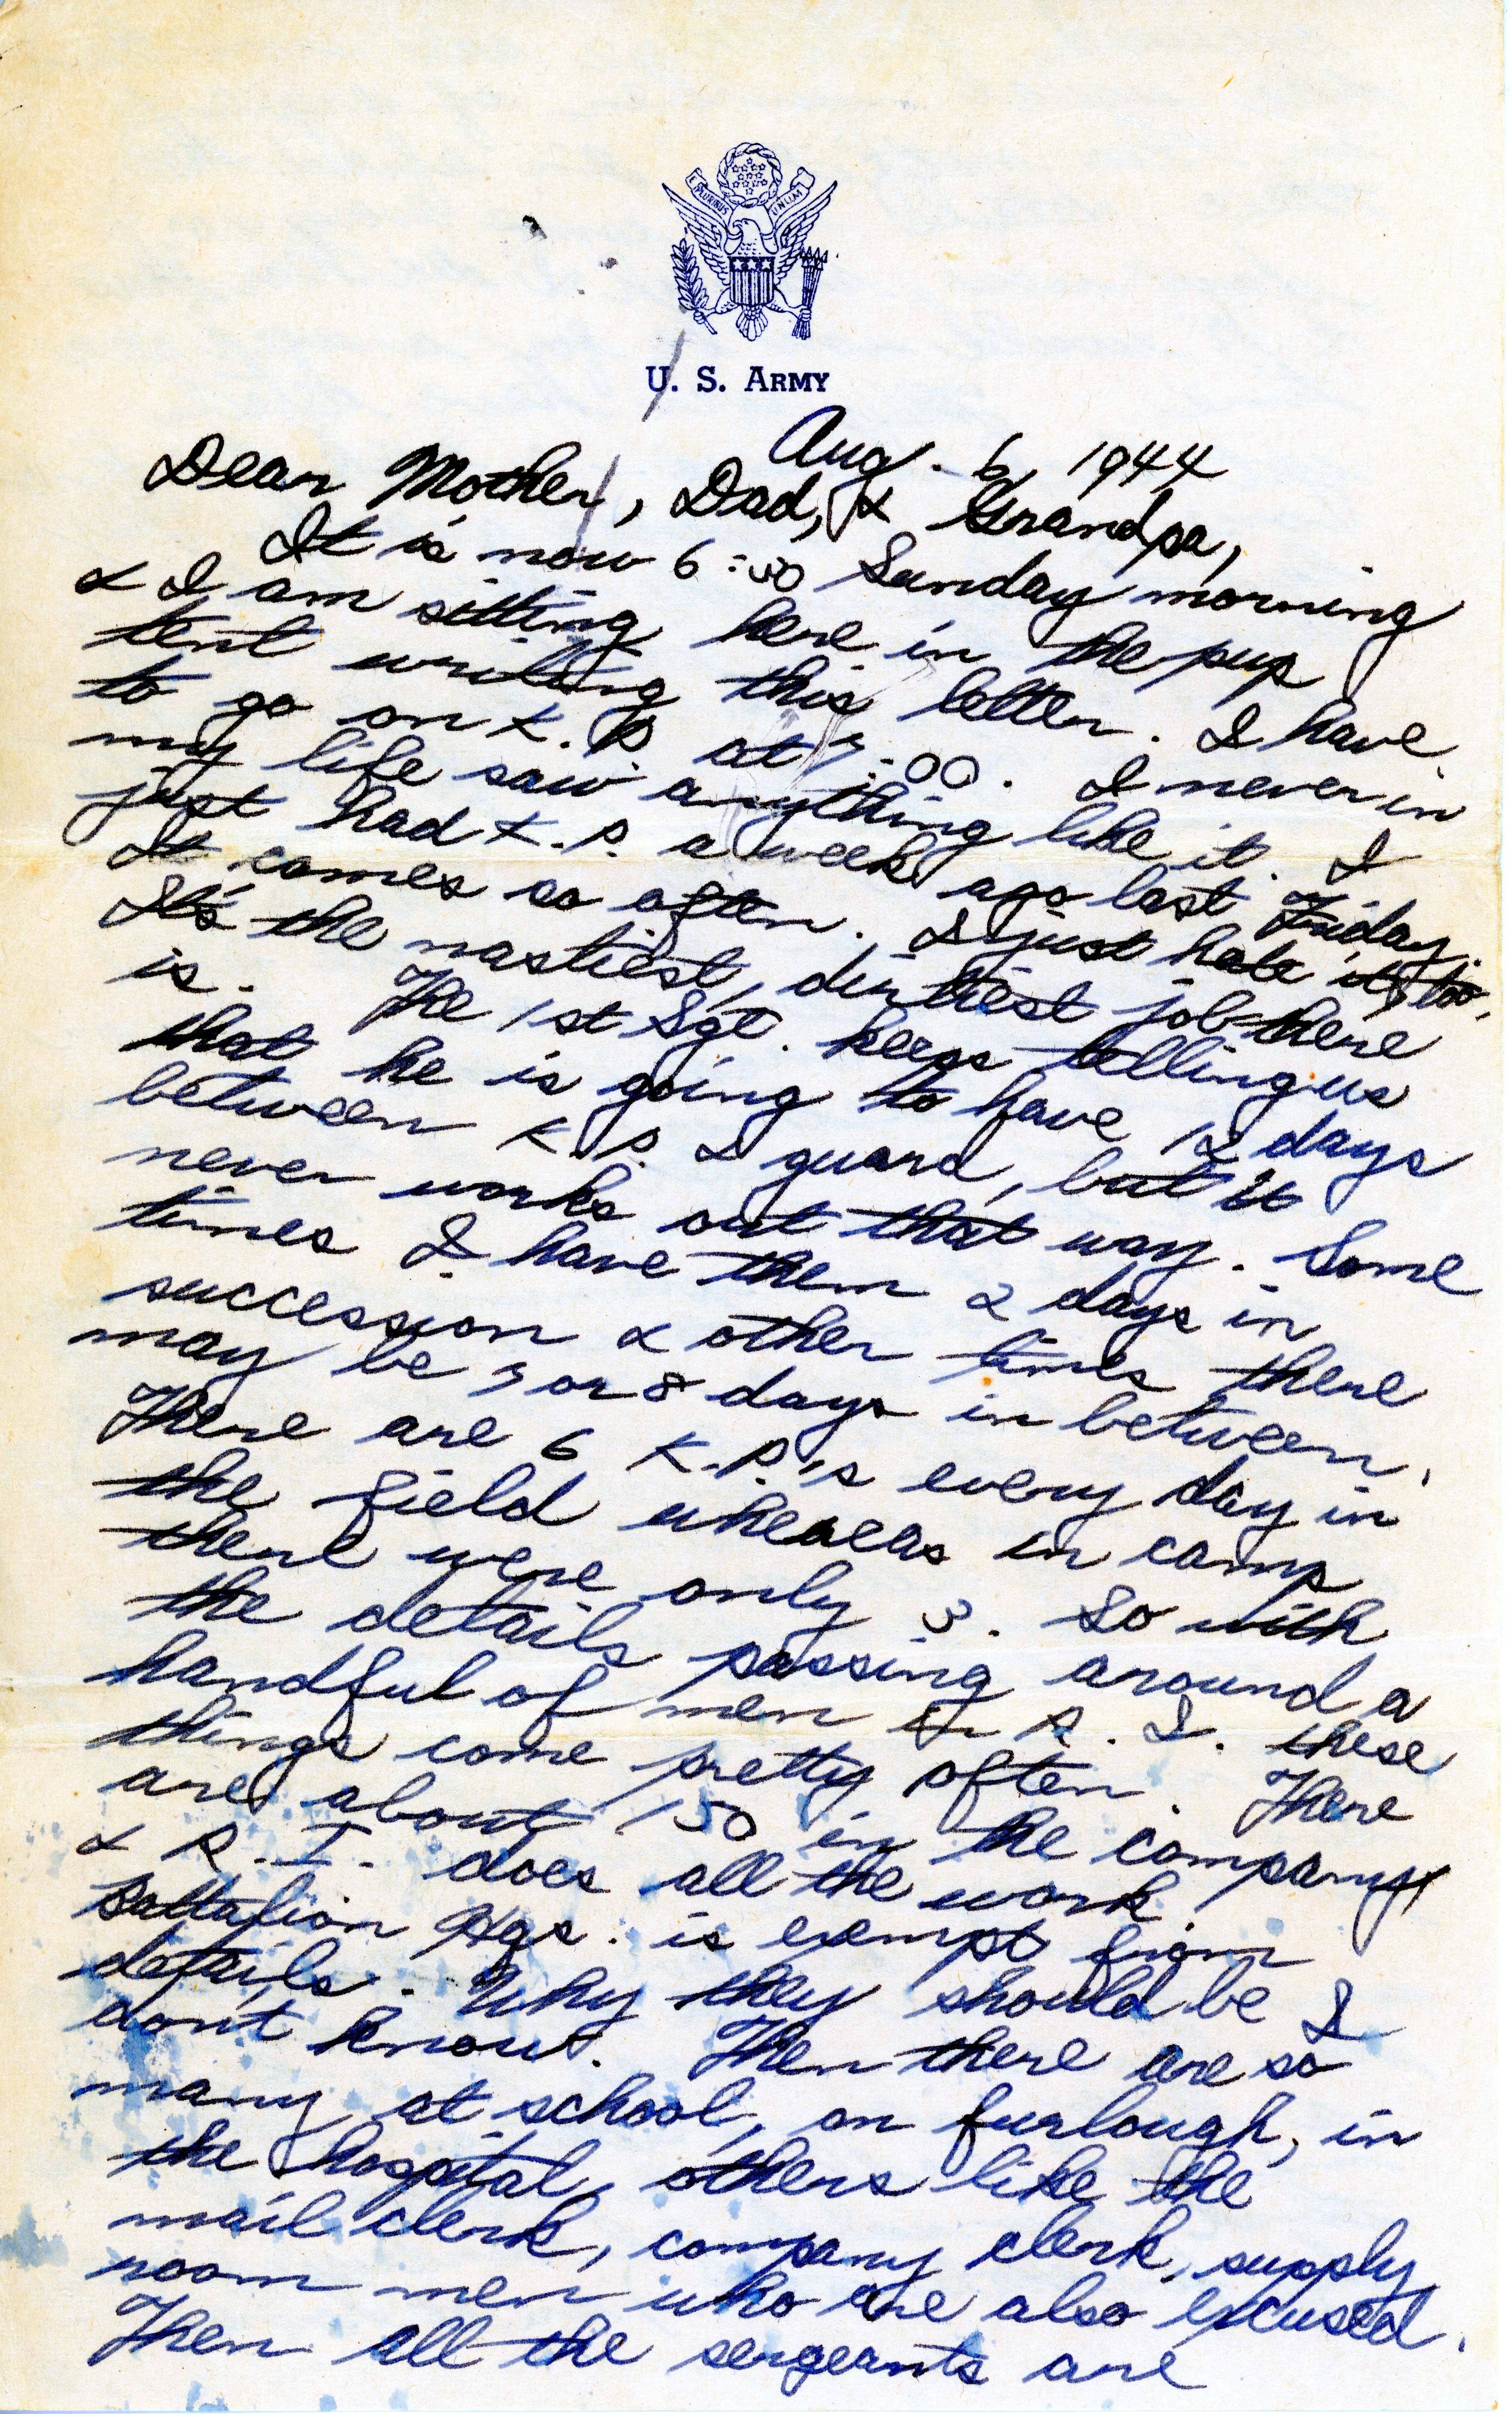 E PLURIBUS UNUM
U. S. ARMY
Aug. 6, 1944
Dear Mother, Dad, & Grandpa,
It is now 6:50 Sunday morning
& I am sitting here in the pup
tent writing this letter. I have
to go on K.P. at 7:00. I never in
my life saw anything like it. I
just had K.P. a week ago last Friday.
It comes so often. I just hate it, too.
It's the nastiest, dirtiest job there
is. The 1st Sgt. keeps telling us
that he is going to have 12 days
between K.P. & guard, but it
never works out that way. Some
times I have them 2 days in
succession & other times there
may be 7 or 8 days in between.
There are 6 K.P.'s every day in
the field whereas in camp
there were only 3. So with
the details passing around a
handful of men in P. I. these
things come pretty often. There
are about 150 in the company
& P. I. does all the work.
Battalion Hqs. is exempt from
details. Why they should be I
don't know. Then there are so
many at school, on furlough, in
the hospital, others like the
mail clerk, company clerk, supply
room men who are also excused.
Then all the sergeants are